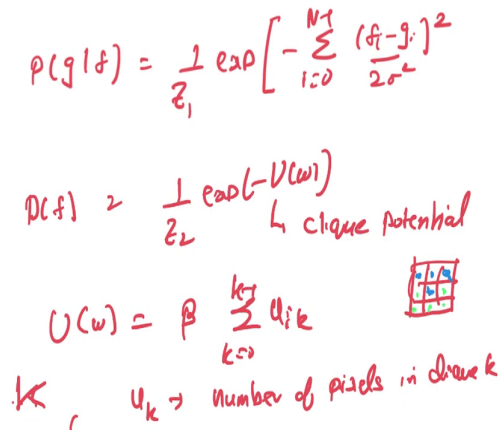 P(g|f) = 1/Z₁ exp[- Σ_{i=0}^{N-1} (fᵢ-gᵢ)²/2σ²]
P(f) = 1/Z₂ exp(-U(ω))
↳ clique potential
U(ω) = β Σ_{k=0}^{k-1} u_{ik}
K u_k → number of pixels in clique k